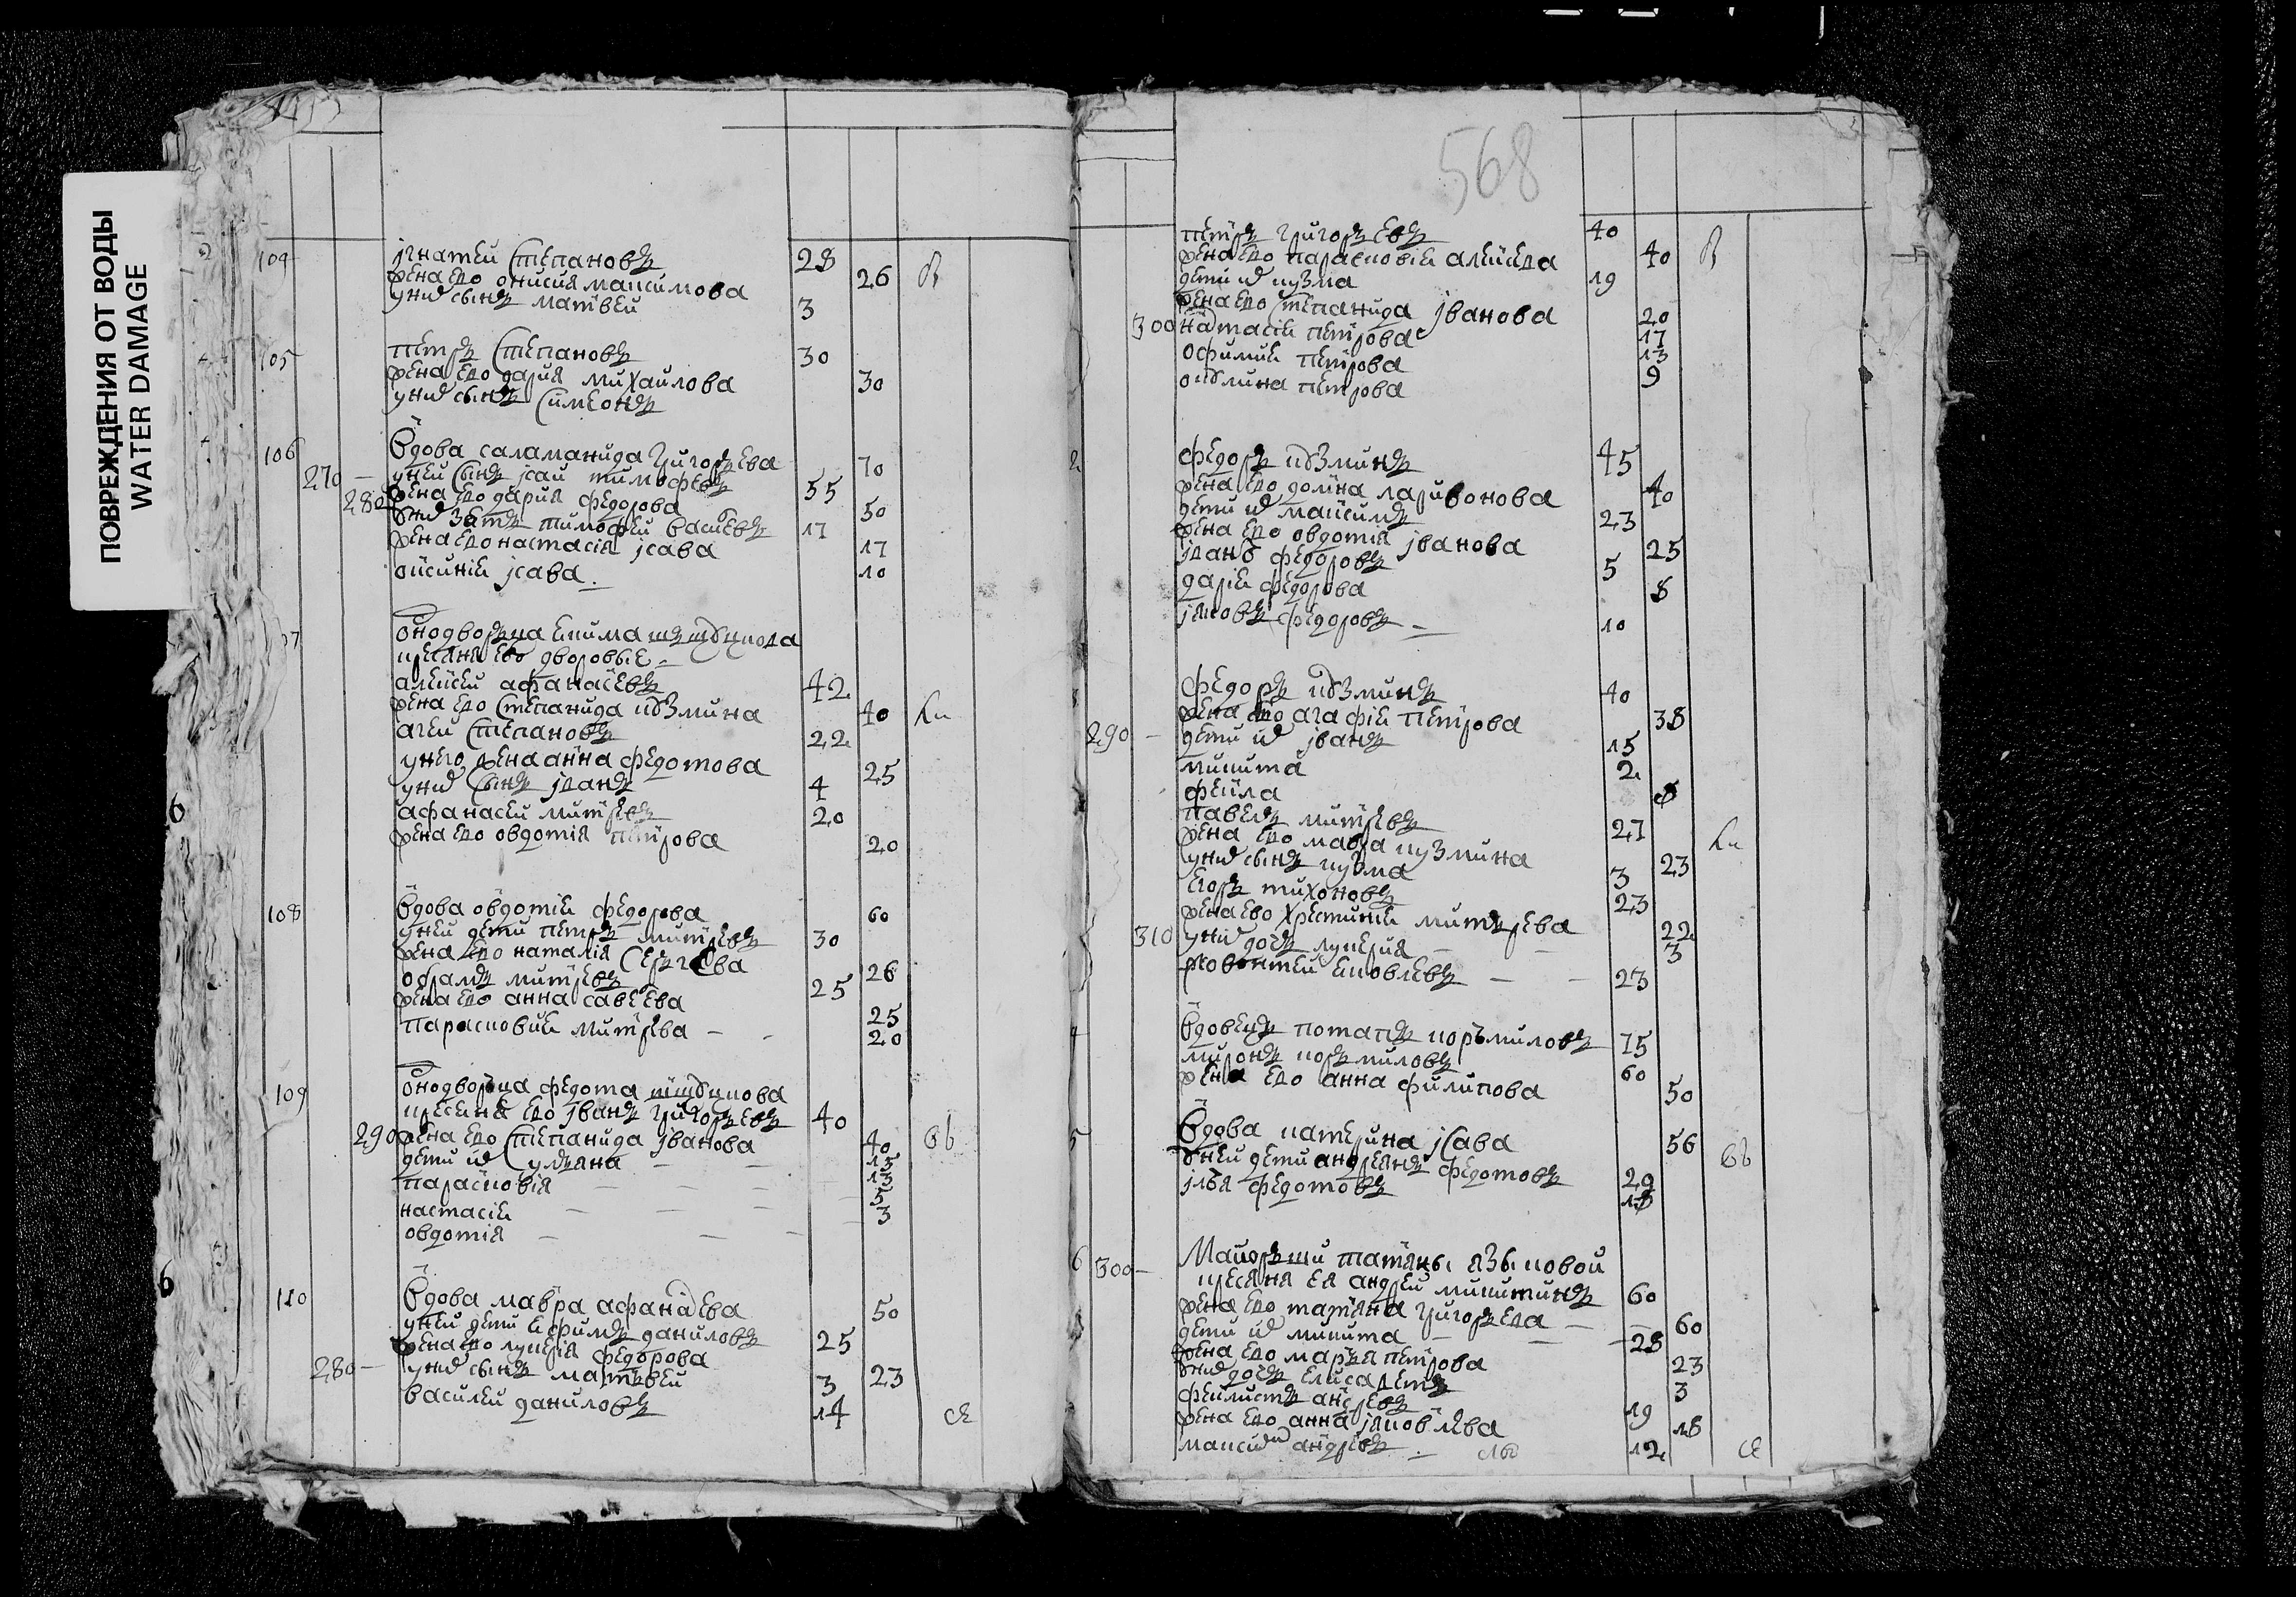 ПОВРЕЖДЕНИЯ ОТ ВОДЫ
WATER DAMAGE
109 игнатеи степановъ 28
жена ево онисия максимова 26
у них сынъ матвеи 3
105 петръ степановъ 30
жена ево дария михаилова 30
у них сынъ симеонъ
106 вдова саламанида григорьева 70
270 у неи сынъ исаи тимофеевъ 55
280 жена ево дария федорова 50
у них зять тимофеи васильевъ 17
жена ево настасия исаева 17
оксиния исаева 10
однодворца екима
крестьяня ево дворовые
алексеи афанасьевъ 42
жена ево степанида кузмина 40
агеи степановъ 22
у него жена анна федотова 25
у них сынъ иванъ 4
афанасеи митревъ 20
жена ево овдотия петрова 20
108 вдова овдотия федорова 60
у неи дети петръ митревъ 30
жена ево наталия сергеева 26
митревъ 25
жена ево анна савельева 25
парасковия митрева 20
109 однодворца федота
крестьяня ево иванъ григорьевъ 40
290 жена ево степанида иванова 40
дети их ульяна 15
парасковия 13
настасия 5
овдотия 3
110 вдова мавра афанасьева 50
у неи дети ефимъ даниловъ 25
жена ево лукерия федорова 23
280 у них сынъ матвеи 3
василеи даниловъ 14
568
петръ григорьевъ 40
жена ево парасковия алексеева 40
дети их кузма 19
жена ево степанида иванова 20
300 настасия петрова 17
офимия петрова 13
окулина петрова 9
2 федоръ кузминъ 45
жена ево ларивонова 40
дети их максимъ 23
жена ево овдотия иванова 25
иванъ федоровъ 5
дария федорова 8
яковъ федоровъ 10
федоръ кузминъ 40
жена ево агафия петрова 38
290 дети их иванъ 15
микита 2
фекла 8
павелъ митревъ 27
жена ево мавра кузмина 23
у них сынъ кузма 3
егоръ тихоновъ 23
жена ево хрестиния митрева 22
310 у них дочь лукерия 3
яковлевъ 23
4 вдовецъ потапъ кормиловъ 75
миронъ кормиловъ 60
жена ево анна филипова 50
5 вдова катерина исаева 56
у неи дети андреянъ федотовъ 29
илья федотовъ 18
6 300 маиорши татяны языковой
крестьяня ея андреи микитинъ 60
жена ево татьяна григорьева 60
дети их микита 28
жена ево марья петрова 23
у них дочь елисаветъ 3
феклистъ андреевъ 19
жена ево анна яковлева 18
максимъ андреевъ 12